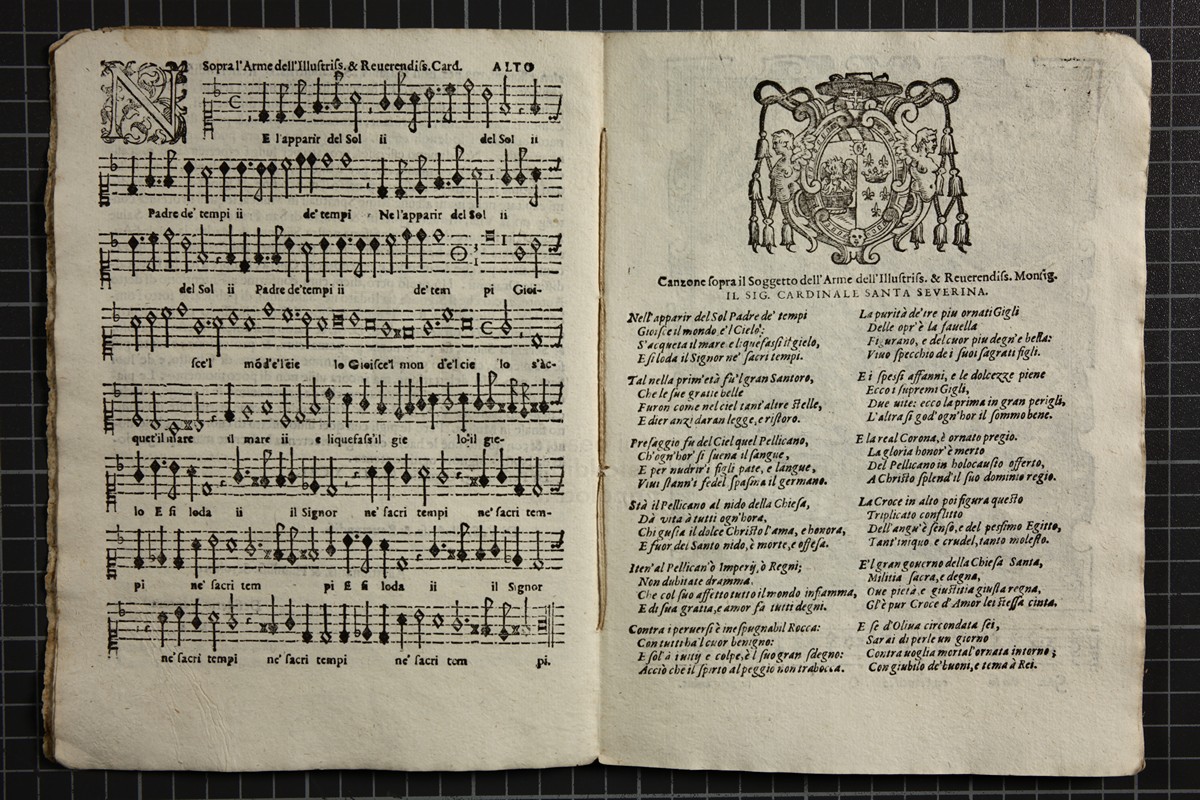 Sopra l'Arme dell'Illustriſs. & Reuerendiſs. Card. ALTO
N
E l'apparir del Sol ii del Sol ii
Padre de' tempi ii de' tempi Ne l'apparir del Sol ii
del Sol ii Padre de' tempi ii de' tem pi Gioi-
sce'l mõd'e'l cie lo Gioisce'l mon d'e'l cie lo s'ac-
quet'il mare il mare ii e liquefass'il gie lo il gie-
lo E si loda ii il Signor ne' sacri tempi ne' sacri tem-
pi ne' sacri tem pi E si loda ii il Signor
ne' sacri tempi ne' sacri tempi ne' sacri tem pi.
Canzone ſopra il Soggetto dell'Arme dell'Illuſtriſs. & Reuerendiſs. Monſig.
IL SIG. CARDINALE SANTA SEVERINA.
Nell'apparir del Sol Padre de' tempi
Gioiſce il mondo, e'l Cielo:
S'acqueta il mare e liquefaſſi il gielo,
E ſi loda il Signor ne' ſacri tempi.
Tal nella prim'età fù'l gran Santoro,
Che le ſue gratie belle
Furon come nel ciel tant'altre ſtelle,
E dier anzi daran legge, e riſtoro.
Preſaggio fu del Ciel quel Pellicano,
Ch'ogn'hor ſi ſuena il ſangue,
E per nudrir'i figli pate, e langue,
Viui ſtann'i fedel ſpaſina il germano.
Stà il Pellicano al nido della Chieſa,
Dà vita à tutti ogn'hora,
Chi guſta il dolce Chriſto l'ama, e honora,
E fuor dei Santo nido, è morte, e offeſa.
Iten'al Pellican'ò Imperij, ò Regni;
Non dubitate dramma,
Che col ſuo affetto tutto il mondo infiamma,
E di ſua gratia, e amor fa tutti degni.
Contra i peruerſi è ineſpugnabil Rocca:
Con tutti ha'l cuor benigno:
E ſol'à e colpe, è l ſuo gran ſdegno:
Acciò che il ſpirto al peggio non trabocca.
La purità de' tre piu ornati Gigli
Delle opr'è la fauella
Figurano, e del cuor piu degn'e bella:
Viuo ſpecchio dei ſuoi ſagrati figli.
E i ſpeſſi affanni, e le dolcezze piene
Ecco i ſupremi Gigli,
Due uite: ecco la prima in gran perigli,
L'altra ſi god'ogn'hor il ſommo bene.
E la real Corona, è ornato pregio.
La gloria honor'è merto
Del Pellicano in holocauſto offerto,
A Chriſto ſplend'il ſuo dominio regio.
La Croce in alto poi figura queſto
Triplicato conflitto
Dell'angu'è ſenſo, e del peſſimo Egitto,
Tant'iniquo e crudel, tanto moleſto.
E'l gran gouerno della Chieſa Santa,
Militia ſacra, e degna,
Oue pieta, e giuſtitia giuſta regna,
Gl'è pur Croce d'Amor lei ſteſſa cinta.
E ſe d'Oliua circondata ſei,
Sarai di perle un giorno
Contra uoglia mortal'ornata intorno;
Con giubilo de' buoni, e tema à Rei.